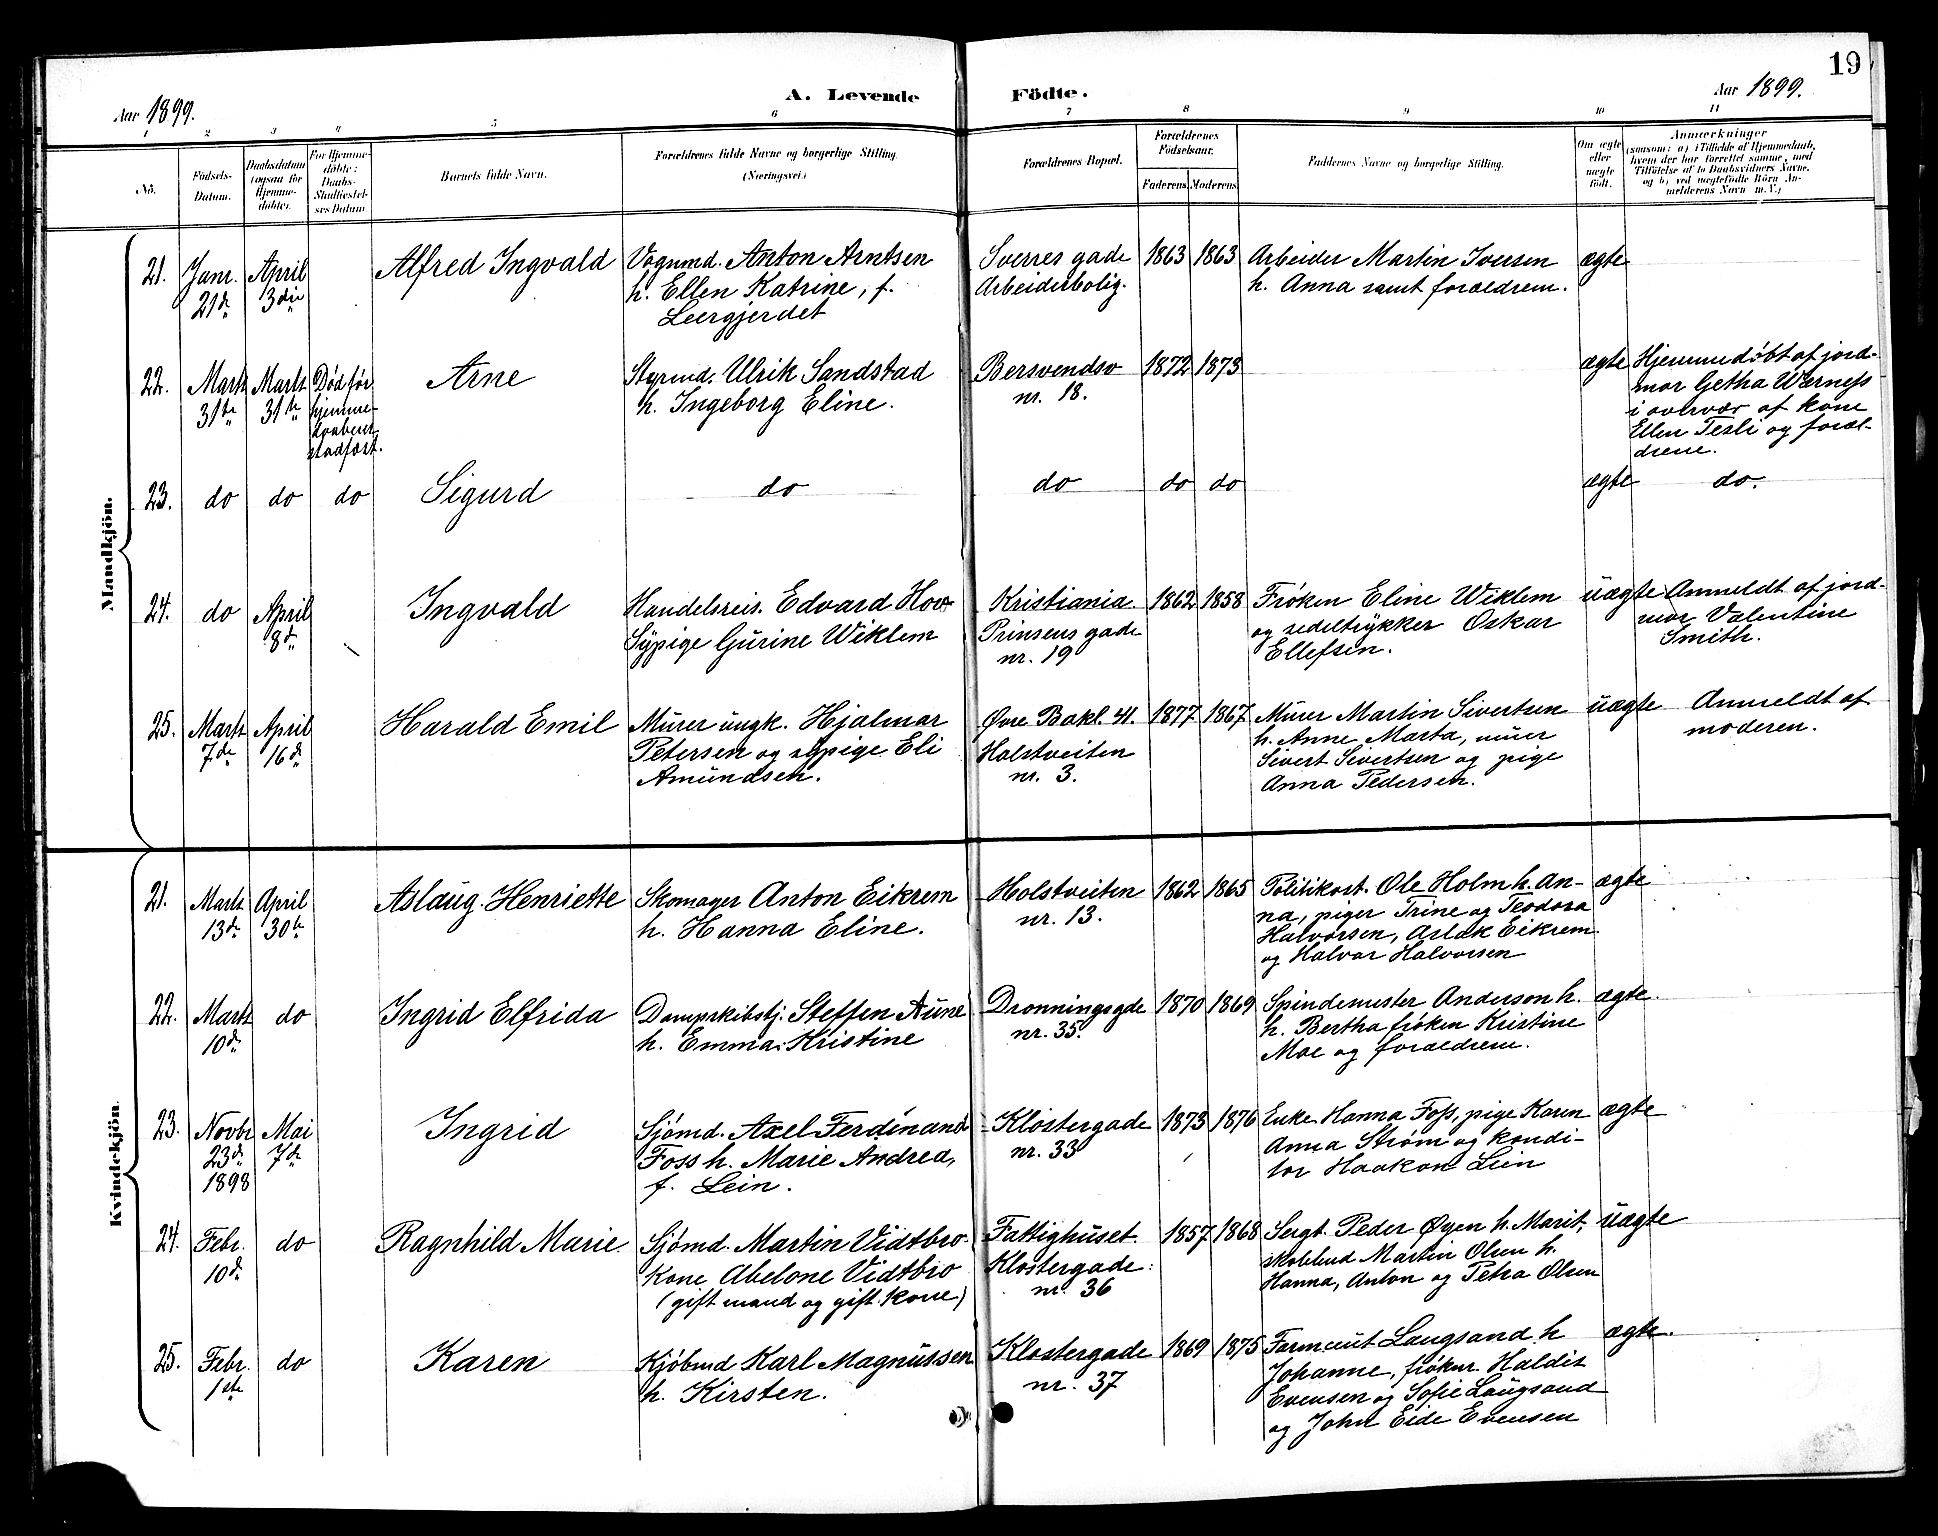 19
A. Levende Födte.
Aar 1899.
Aar 1899.
1 2 3 4 5 6 7 8 9 10 11
No.
Födsels-
Datum.
Daabsdatum
(ogsaa for
Hjemme-
döbte).
For Hjemme-
döbte:
Daabs-
Stadfæstel-
ses Datum
Barnets fulde Navn.
Forældrenes fulde Navne og borgerlige Stilling.
(Næringsvei.)
Forældrenes Bopæl.
Forældrenes
Födselsaar.
Faderens
Moderens
Faddernes Navne og borgerlige Stilling.
Om ægte
eller
uægte
födt.
Anmærkninger
(saasom: a) i Tilfælde af Hjemmedaab,
hvem der har forrettet samme, med
Tilföielse af to Daabsvidners Navne,
og b) ved uægtefödte Börn An-
melderens Navn m. V.)
Mandkjön.
21.
Janr.
21de
April
3die
Alfred Ingvald
Vognmd. Anton Arntsen
h. Ellen Katrine, f.
Leergjerdet
Sverres gade
Arbeiderbolig.
1863
1863
Arbeider Martin Iversen
h. Anna samt forældrene.
ægte
22.
Marts
31te
Marts
31te
Død før
hjemme-
daaben
stadfæst.
Arne
Styrmd. Ulrik Sandstad
h. Ingeborg Eline.
Bersvendsv
nr. 18.
1872
1873
ægte
Hjemmedøbt af jord-
mor Getha Wærness
i overvær af kone
Ellen Tesli og foræl-
drene.
23.
do
do
do
Sigurd
do
do
do
do
ægte
do.
24.
do
April
8de
Ingvald
Handelsreis. Edvard Hov
Sypige Gurine Wiklem
Kristiania.
Prinsens gade
nr. 19
1862
1858
Frøken Eline Wiklem
og sedeltrykker Oskar
Ellefsen.
uægte
Anmeldt af jord-
mor Valentine
Smith.
25.
Marts
7de
April
16de
Harald Emil
Murer ungk. Hjalmar
Petersen og sypige Eli
Amundsen.
Øvre Bakl. 41.
Holstveiten
nr. 3.
1877
1867
Murer Martin Sivertsen
h. Anne Marta, murer
Sivert Sivertsen og pige
Anna Pedersen.
uægte
Anmeldt af
moderen.
Kvindekjön.
21.
Marts
13de
April
30te
Aslaug Henriette
Skomager Anton Eikrem
h. Hanna Eline.
Holstveiten
nr. 13.
1862
1865
Politikost. Ole Holm h. An-
na, piger Trine og Teodora
Halvorsen, Aslak Eikrem
og Halvar Halvorsen
ægte
22.
Marts
10de
do
Ingrid Elfrida
Dampskibstj. Steffen Aune
h. Emma Kristine
Dronningsgde
nr. 35.
1870
1869
Spindemester Anderson h.
h. Bertha frøken Kristine
Moe og forældrene.
ægte.
23.
Novbr
23de
1898
Mai
7de
Ingrid
Sjømd. Axel Ferdinand
Foss h. Marie Andrea,
f. Lein.
Klostergade
nr. 33
1873
1876
Enke Hanna Foss, pige Karen
Anna Strøm og kondi-
tor Haakon Lein
ægte
24.
Febr.
10de
do
Ragnhild Marie
Sjømd. Martin Vidtbro
Kone Abelone Vidtbro
(gift mand og gift kone)
Fattighuset.
Klostergade
nr. 36
1857
1868
Sergt. Peder Øyen h. Marit,
Martin Olsen h.
Hanna, Anton og Petra Olsen
uægte
25.
Febr.
1ste
do
Karen
Kjøbmd Karl Magnussen
h. Kirsten.
Klostergade
nr. 37
1869
1875
Langsand h
Johanne, frøkner Haldis
Evensen og Sofie Langsand
og John Eide Evensen
ægte.